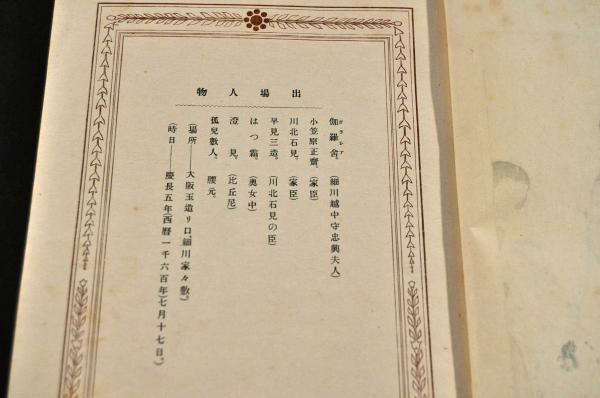 出場人物
伽羅舍。(細川越中守忠興夫人)
ガラシア
小笠原正齋。(家臣)
川北石見。(家臣)
早見三造。(川北石見の臣)
はつ霜。(奥女中)
澄見。(比丘尼)
孤兒數人。腰元。
(場所――大阪玉造リ口、細川家々敷。)
(時日――慶長五年(西曆一千六百年)七月十七日。)